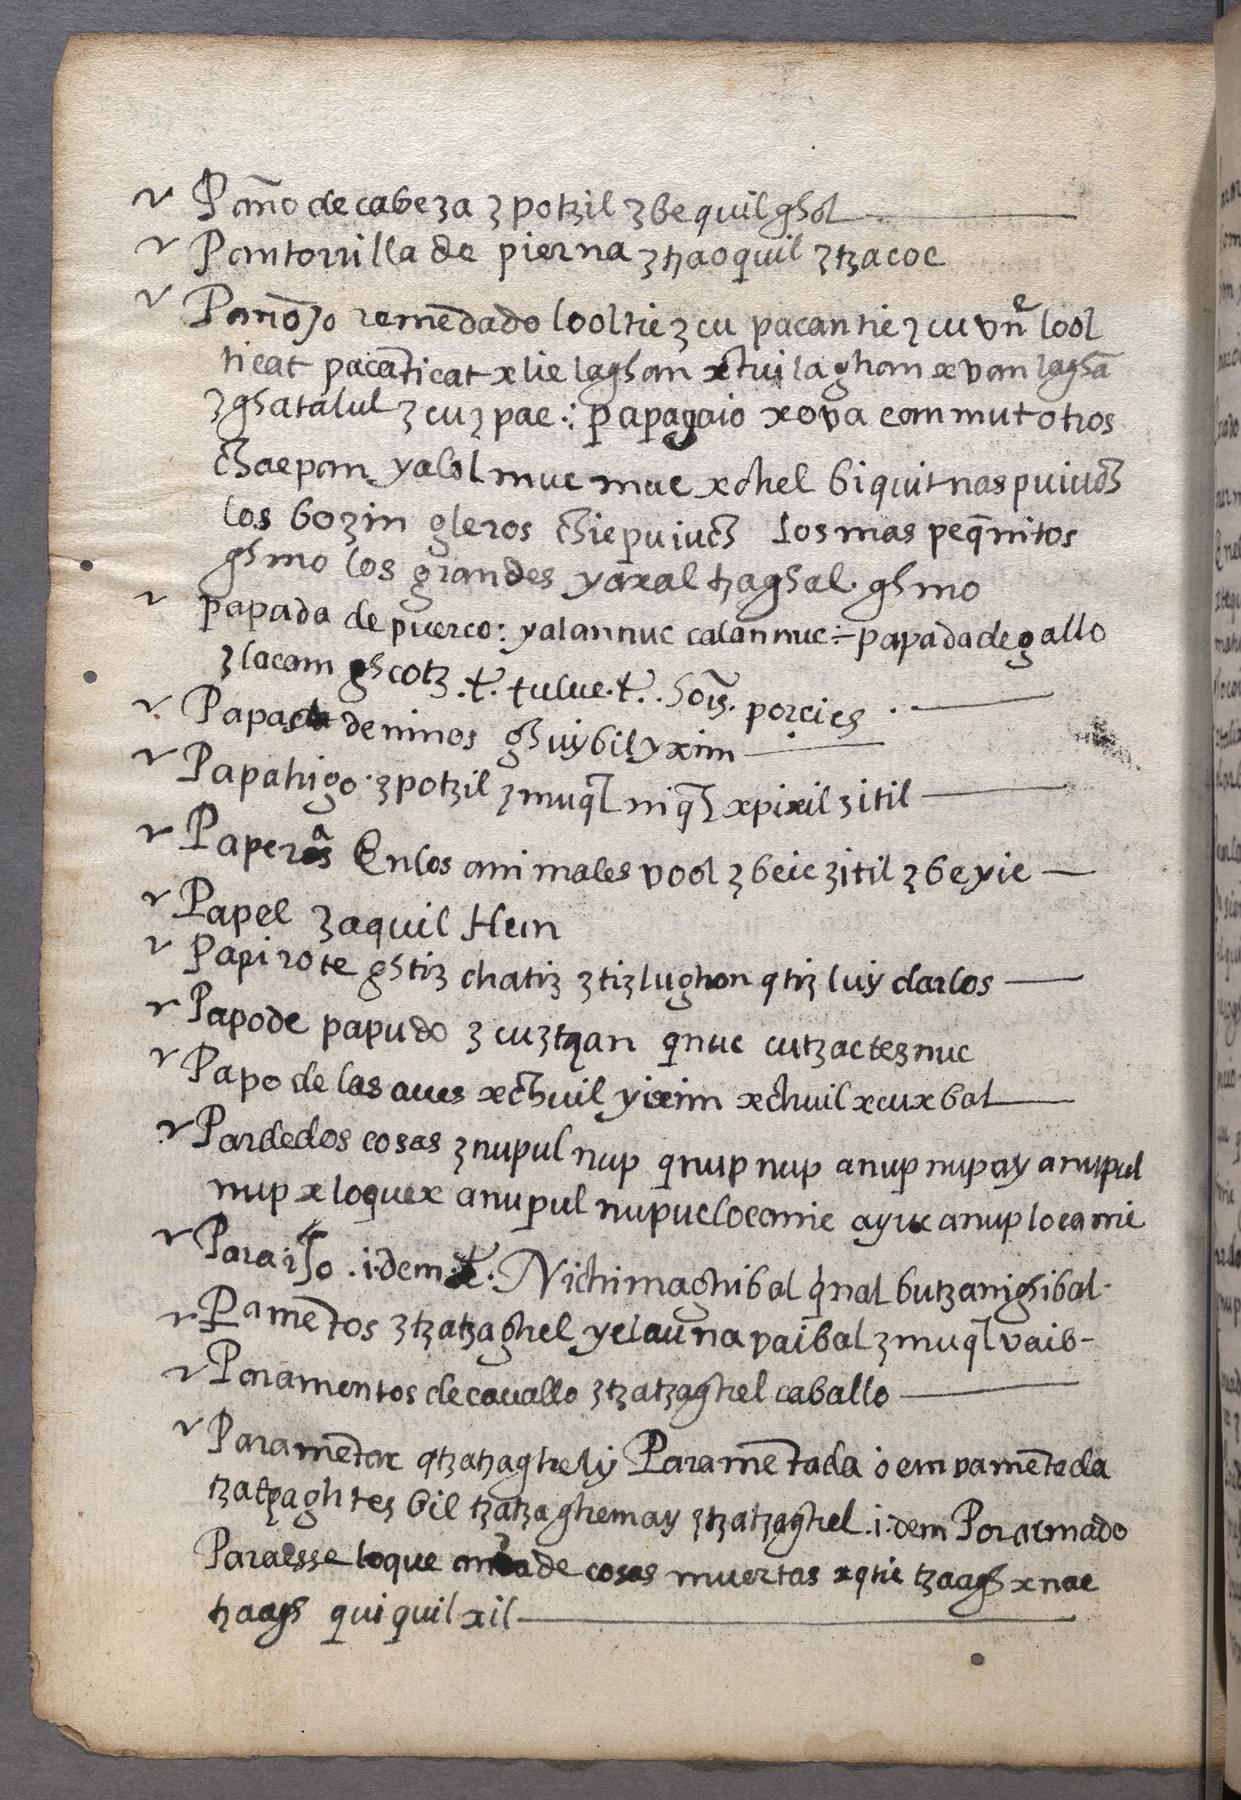 Paño de cabeza ʒ potʒil ʒ bequilghol
Pantorrilla de pierna ʒ tʒaoquil ʒ tʒacoc
remēdado looltic ʒ cu pacantic ʒ cu vñe lool
ticat pacāticat xlic laghan xchui laghan x van laghā
ʒghatalul ʒ cuʒ pac .: papagaio xova canmut otros
chaepan yalol muc muc xchel biquit nas puiuch
los bozin gleros chiepuiuch los mas peq̄nitos
ghmo los grandes yaxal tʒaghal. ghmo
papada de puerco: yalannuc calannuc ÷ papada de gallo
ʒlacam ghcotʒ .t. tuluc .t. porcies
Papas de ninos ghuybil yxim
Papahigo. ʒpotʒil ʒmuq̄l niq̄l xpixil ʒitil
Paperas En los animales vool ʒbeic ʒitil ʒbeyic
Papel ʒaquil Hun
Papirote ghtiʒ chatiʒ ʒtiʒlughon qtiʒ luiy darlos
Papo de papudo ʒ cuʒtʒan qnuc cutʒacteʒnuc
Papo de las aues xchuil yixim xchuil xcuxbal
Par de dos cosas ʒnupul nup qnup nup anup nupay anupul
nup xloquex anupul nupuclocomic ayuc anuplocamic
Paraiso .idem .t. Nichimaghibal q̄nal butʒanighibal.
Pamētos ʒtʒatʒaghel yelauna vaibal ʒmuq̄l vaib-
Paramentos de cauallo ʒtʒatʒaghel caballo
Paramētar qtʒatʒagheliy Paramētada o empamētada
tʒatʒaghteʒ bil tʒatʒaghemay ʒtʒatʒaghel .i.dem Por armado
Paraesse loque de cosas muertas xqtic tʒaagh xnac
tʒaagh quiquilxil